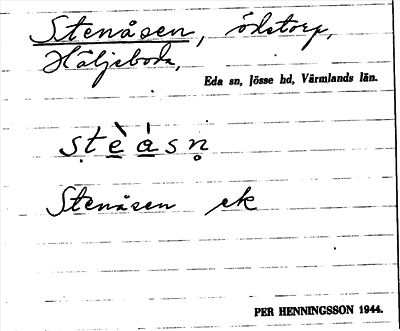 Stenåsen, ödetorp,
Häljeboda,
Eda sn, Jösse hd, Värmlands län.
stè̠á̠sn̥
Stenåsen ek
PER HENNINGSSON 1944.